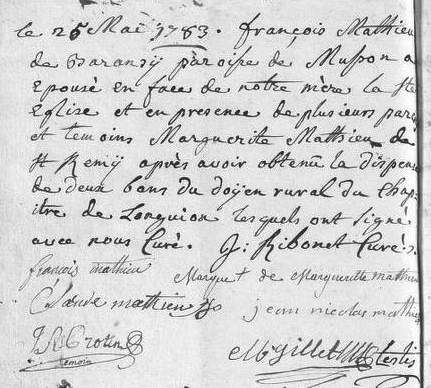 le 25 Mai 1783. françois Mathieu
de Baransÿ paroisse de Musson a
Epousé en face de notre mère la Ste
Eglise et en presence de plusieurs pare
et temoins Marguerite Mathieu de
St Remÿ après avoir obtenu la dispense
de deux bans du doÿen rural du Chap-
itre de Longuion lesquels ont signé
avec nous Curé. J: Ribonet Curé
francois mathieu
Marque † de Margueritte mathieu
Claude mathieu
jean nicolas mathieu
temoin
Gillet testis